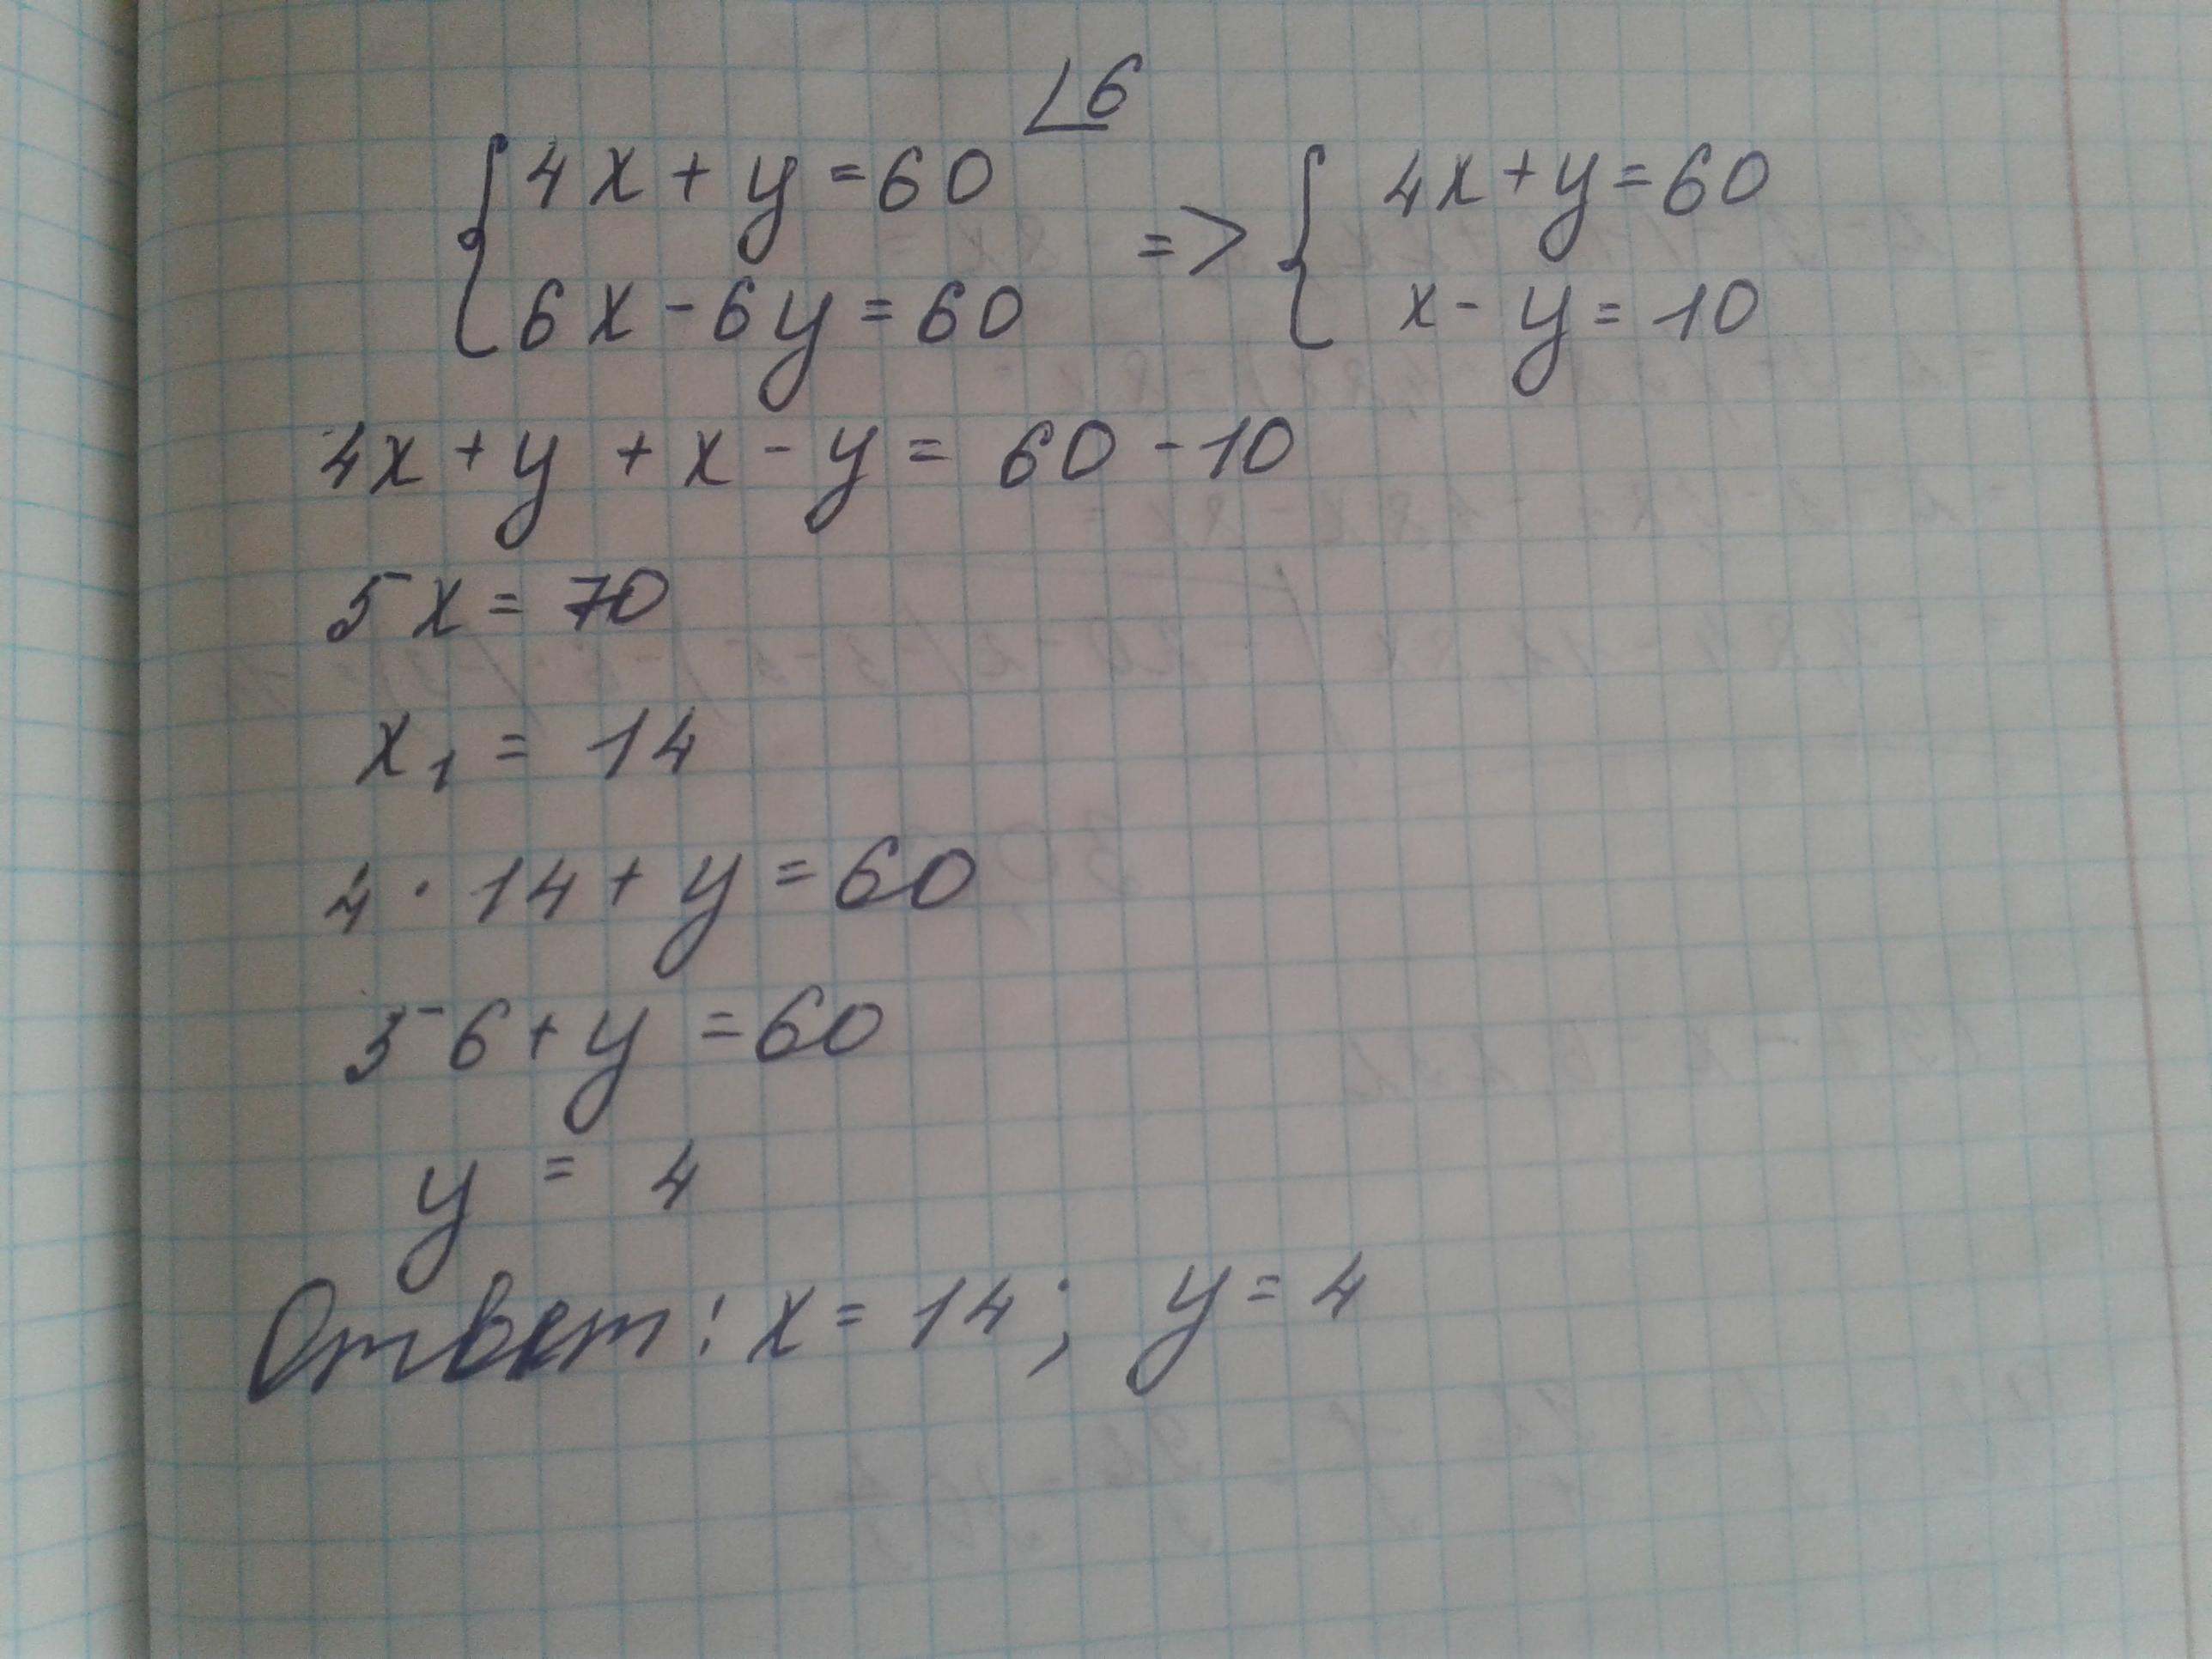 ∟6
{4x + y = 60 => {4x + y = 60
{6x - 6y = 60 {x - y = 10
4x + y + x - y = 60 - 10
5x = 70
x₁ = 14
4 · 14 + y = 60
56 + y = 60
y = 4
Ответ: x = 14; y = 4